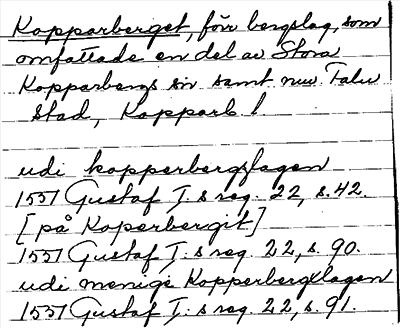 Kopparberget, förr bergslag, som
omfattade en del av Stora
Kopparbergs sn samt nuv. Falu
stad, Kopparb l
udi kopperbergslagen
1537 Gustaf I:s reg. 22, s. 42.
[på Koperbergit]
1537 Gustaf I:s reg. 22, s. 90.
udi menige Kopperbergxlagen
1537 Gustaf I:s reg. 22, s. 91.